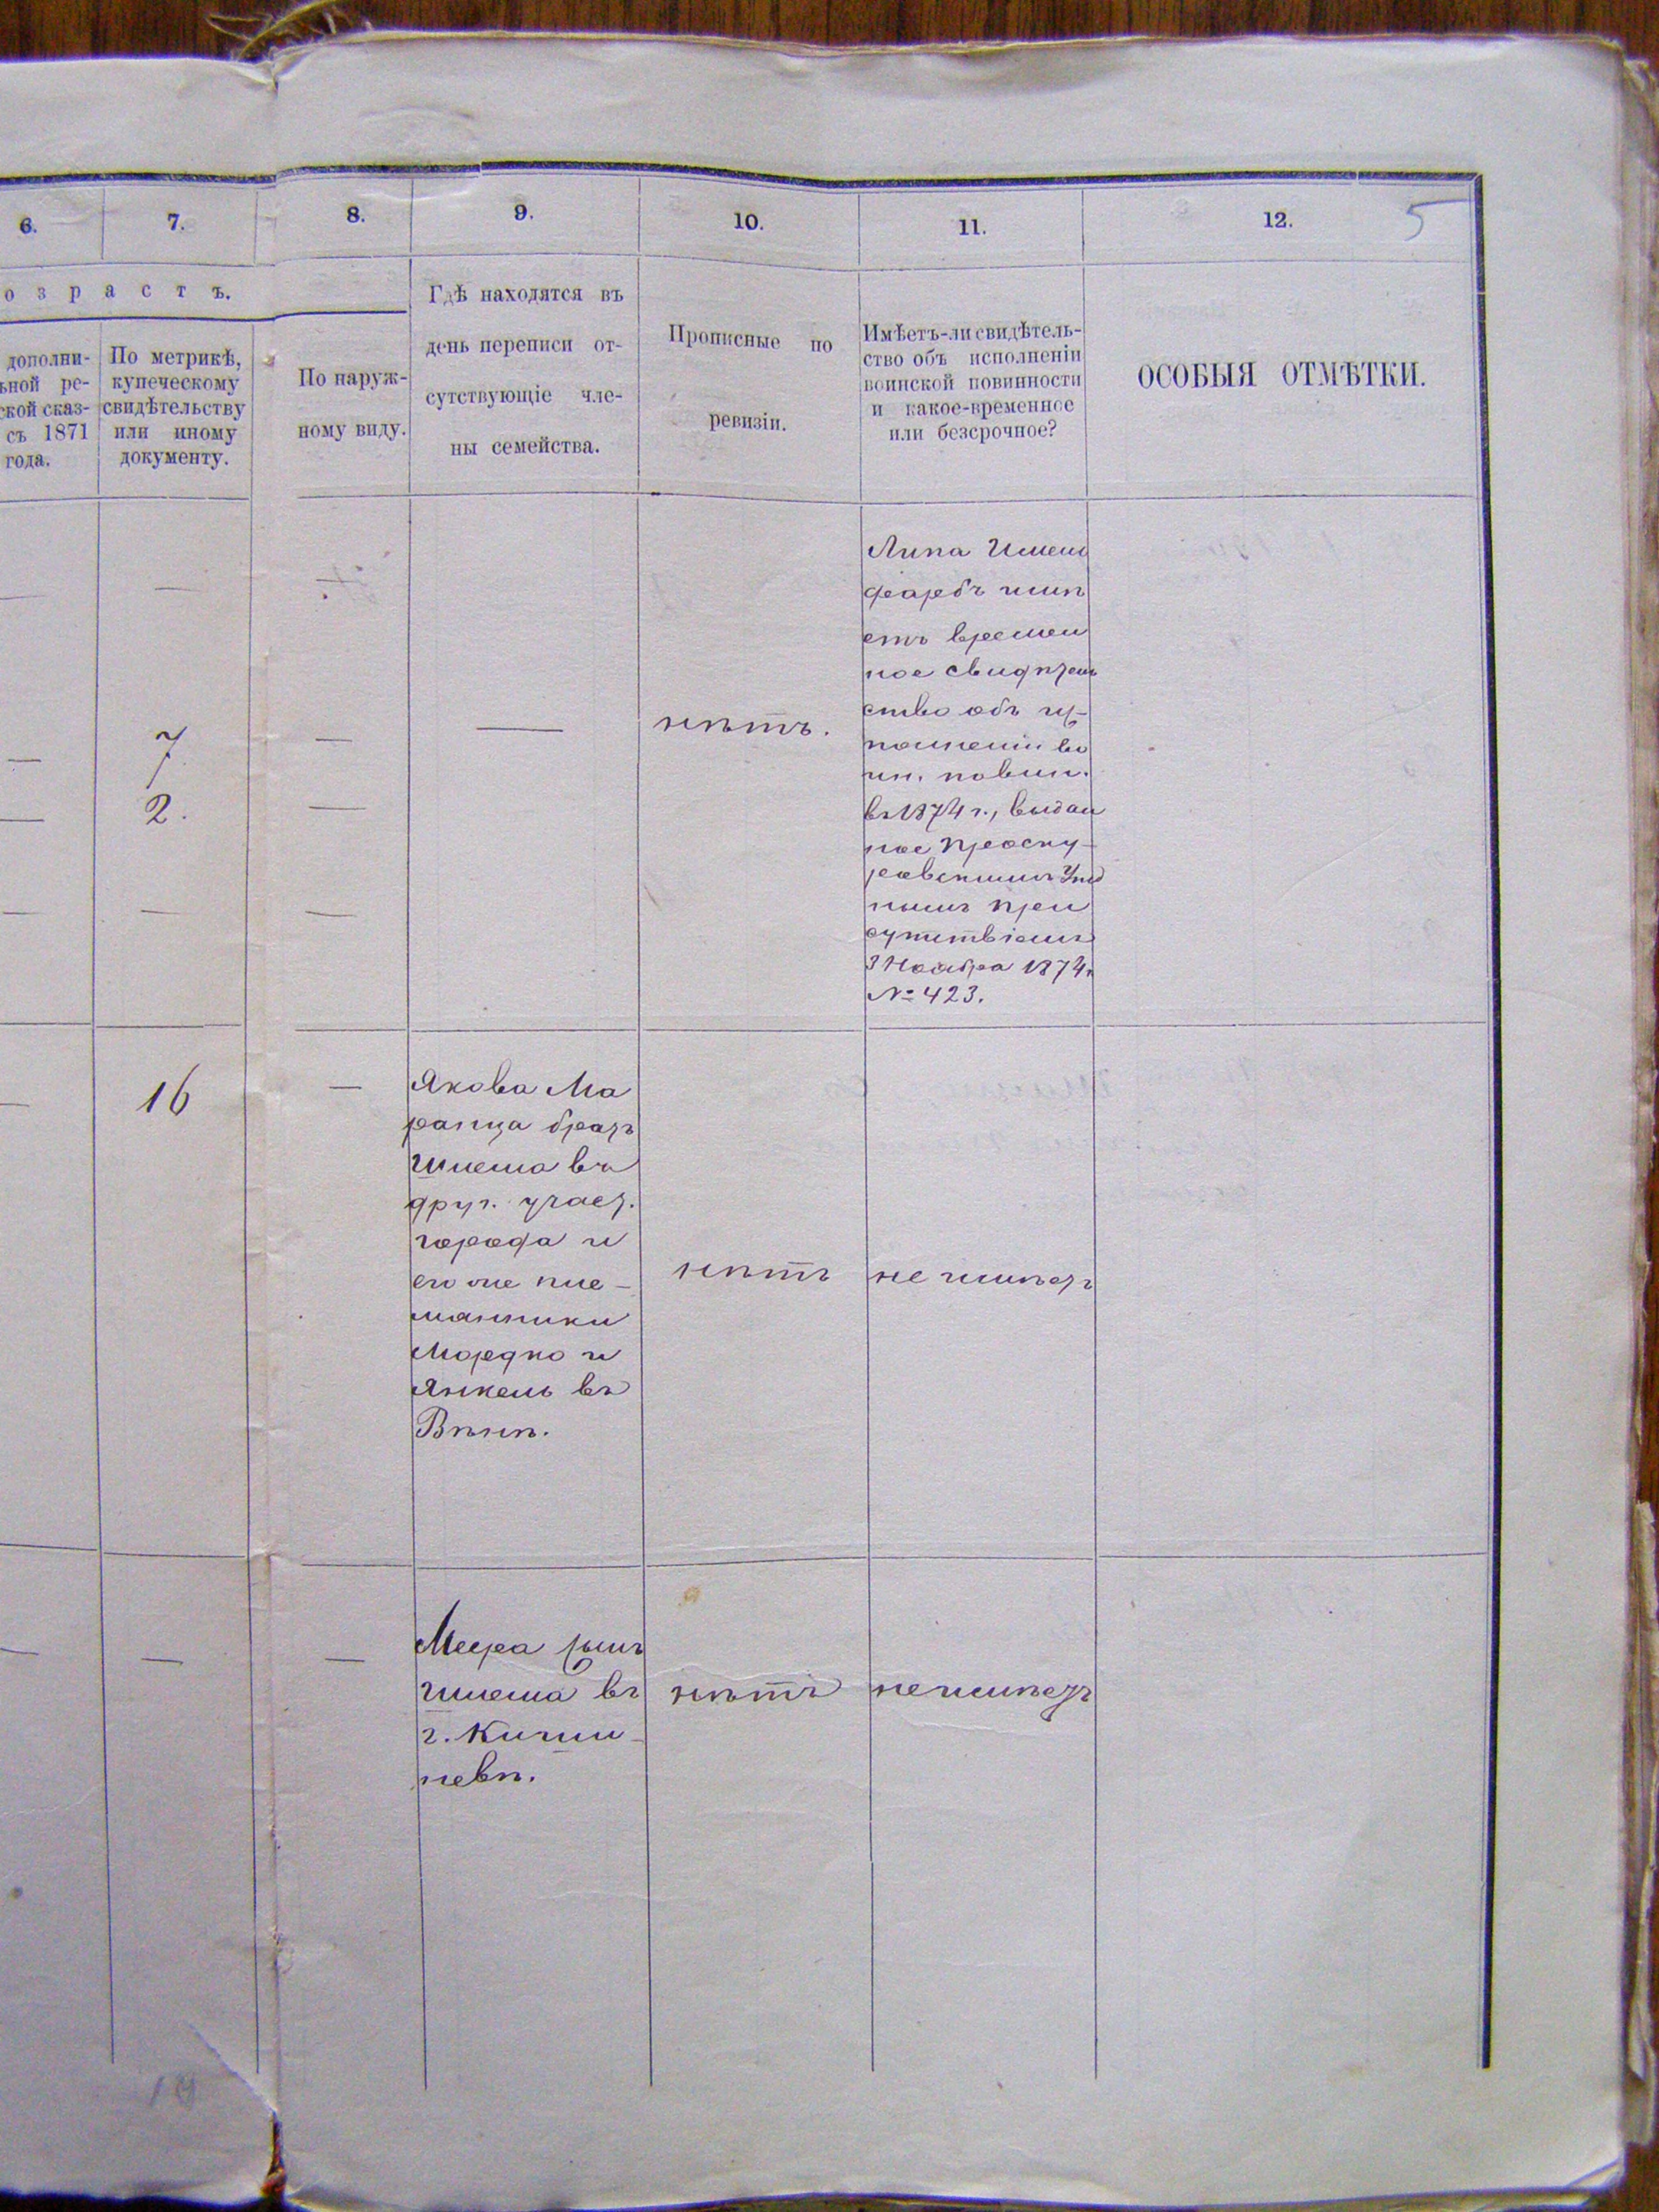 6. 7. 8. 9. 10. 11. 12. 5
о з р а с т ъ.
дополни-
ьной ре-
ской сказ-
съ 1871
года.
По метрикѣ,
купеческому
свидѣтельству
или иному
документу.
По наруж-
ному виду.
Гдѣ находятся въ
день переписи от-
сутствующіе чле-
ны семейства.
Прописные по
ревизіи.
Имѣетъ-ли свидѣтель-
ство объ исполненіи
воинской повинности
и какое-временное
или безсрочное?
ОСОБЫЯ ОТМѢТКИ.
— — —
— 7 —
— 2. —
— — —
—
нѣтъ.
Липа
фарбъ имѣ
етъ времен
ное свидѣтель
ство объ ис-
полненіи во
ин. повин.
въ 1874 г., выдан
ное Проску-
ровскимъ Уѣзд
нымъ При
сутствіемъ
3 Ноября 1874 г
№ 423.
— 16 —
Якова Ма
ранца братъ
Шлема въ
друг. участ.
города и
его же пле-
мянники
Мордко и
Янкель въ
Вѣнѣ.
нѣтъ
не имѣетъ
— — —
сынъ
Шлема въ
г. Киши-
невѣ.
нѣтъ
не имѣетъ
19